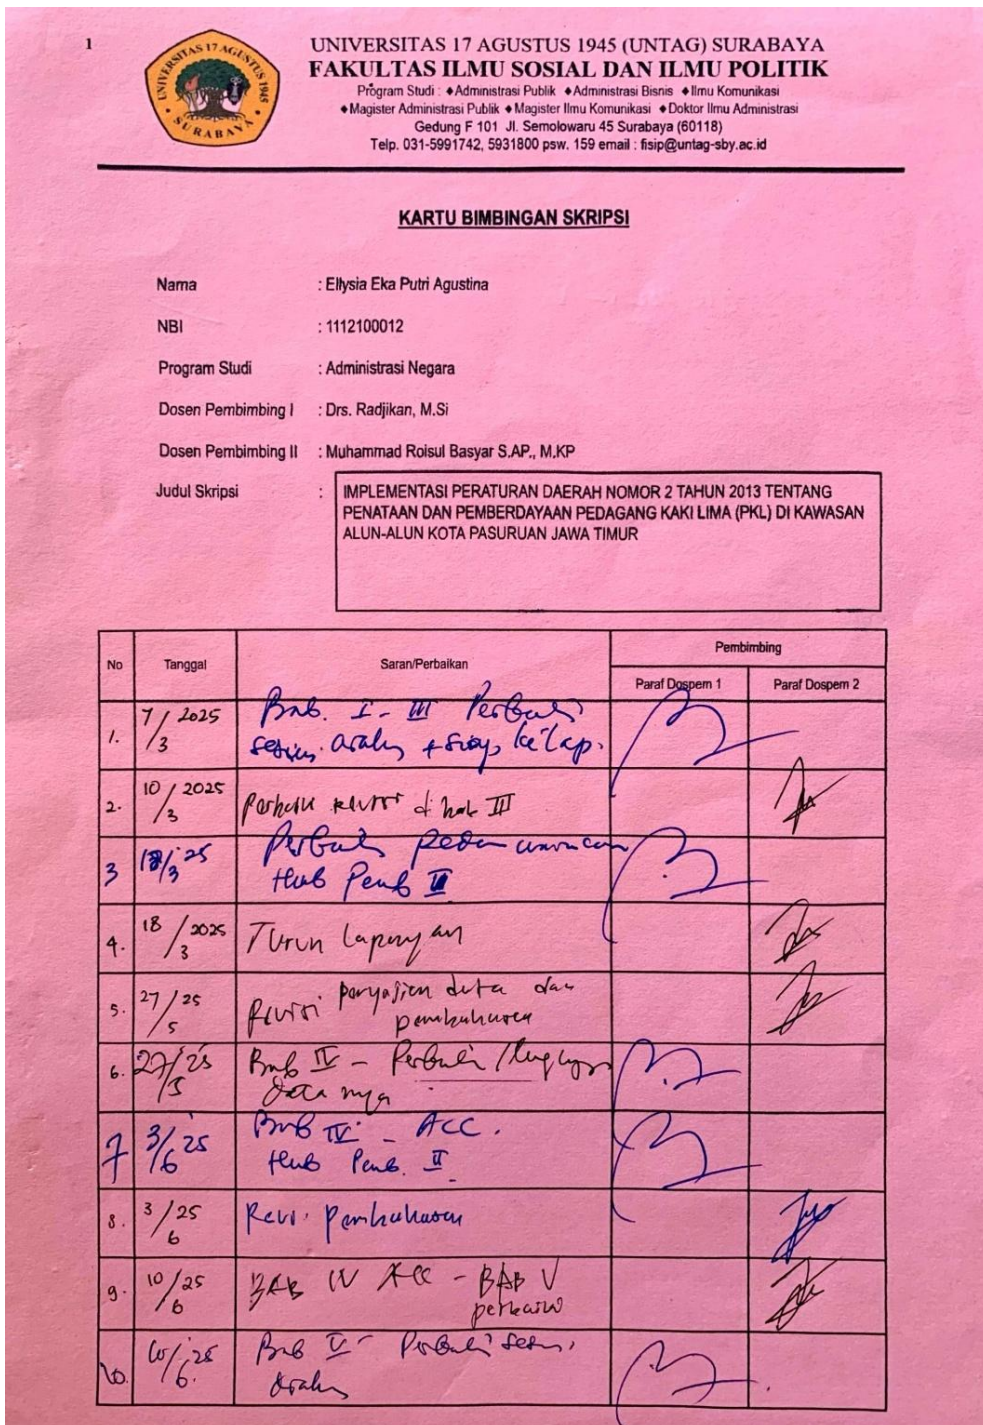 1
UNIVERSITAS 17 AGUSTUS 1945
SURABAYA
UNIVERSITAS 17 AGUSTUS 1945 (UNTAG) SURABAYA
FAKULTAS ILMU SOSIAL DAN ILMU POLITIK
Program Studi : ♦Administrasi Publik ♦Administrasi Bisnis ♦Ilmu Komunikasi
♦Magister Administrasi Publik ♦Magister Ilmu Komunikasi ♦Doktor Ilmu Administrasi
Gedung F 101 Jl. Semolowaru 45 Surabaya (60118)
Telp. 031-5991742, 5931800 psw. 159 email : fisip@untag-sby.ac.id
KARTU BIMBINGAN SKRIPSI
Nama : Ellysia Eka Putri Agustina
NBI : 1112100012
Program Studi : Administrasi Negara
Dosen Pembimbing I : Drs. Radjikan, M.Si
Dosen Pembimbing II : Muhammad Roisul Basyar S.AP., M.KP
Judul Skripsi : IMPLEMENTASI PERATURAN DAERAH NOMOR 2 TAHUN 2013 TENTANG
PENATAAN DAN PEMBERDAYAAN PEDAGANG KAKI LIMA (PKL) DI KAWASAN
ALUN-ALUN KOTA PASURUAN JAWA TIMUR
No Tanggal Saran/Perbaikan Pembimbing
Paraf Dospem 1 Paraf Dospem 2
1. 7/3 2025 Bab. I - III Perbaiki
sesuai arahan + siap ke lap.
2. 10/3 2025 revisi di bab III
3 18/3 25 Perbaiki
Hub Pemb II
4. 18/3 2025 Turun Lapangan
5. 27/5 25 Revisi penyajian data dan
pembahasan
6. 27/5 25 Bab IV - Perbaiki / lengkapi
data nya
7 3/6 25 Bab IV - ACC.
Hub Pemb. II
8. 3/6 25 Revisi Pembahasan
9. 10/6 25 BAB IV ACC - BAB V
10. 10/6 25 Bab V - Perbaiki sesuai
arahan